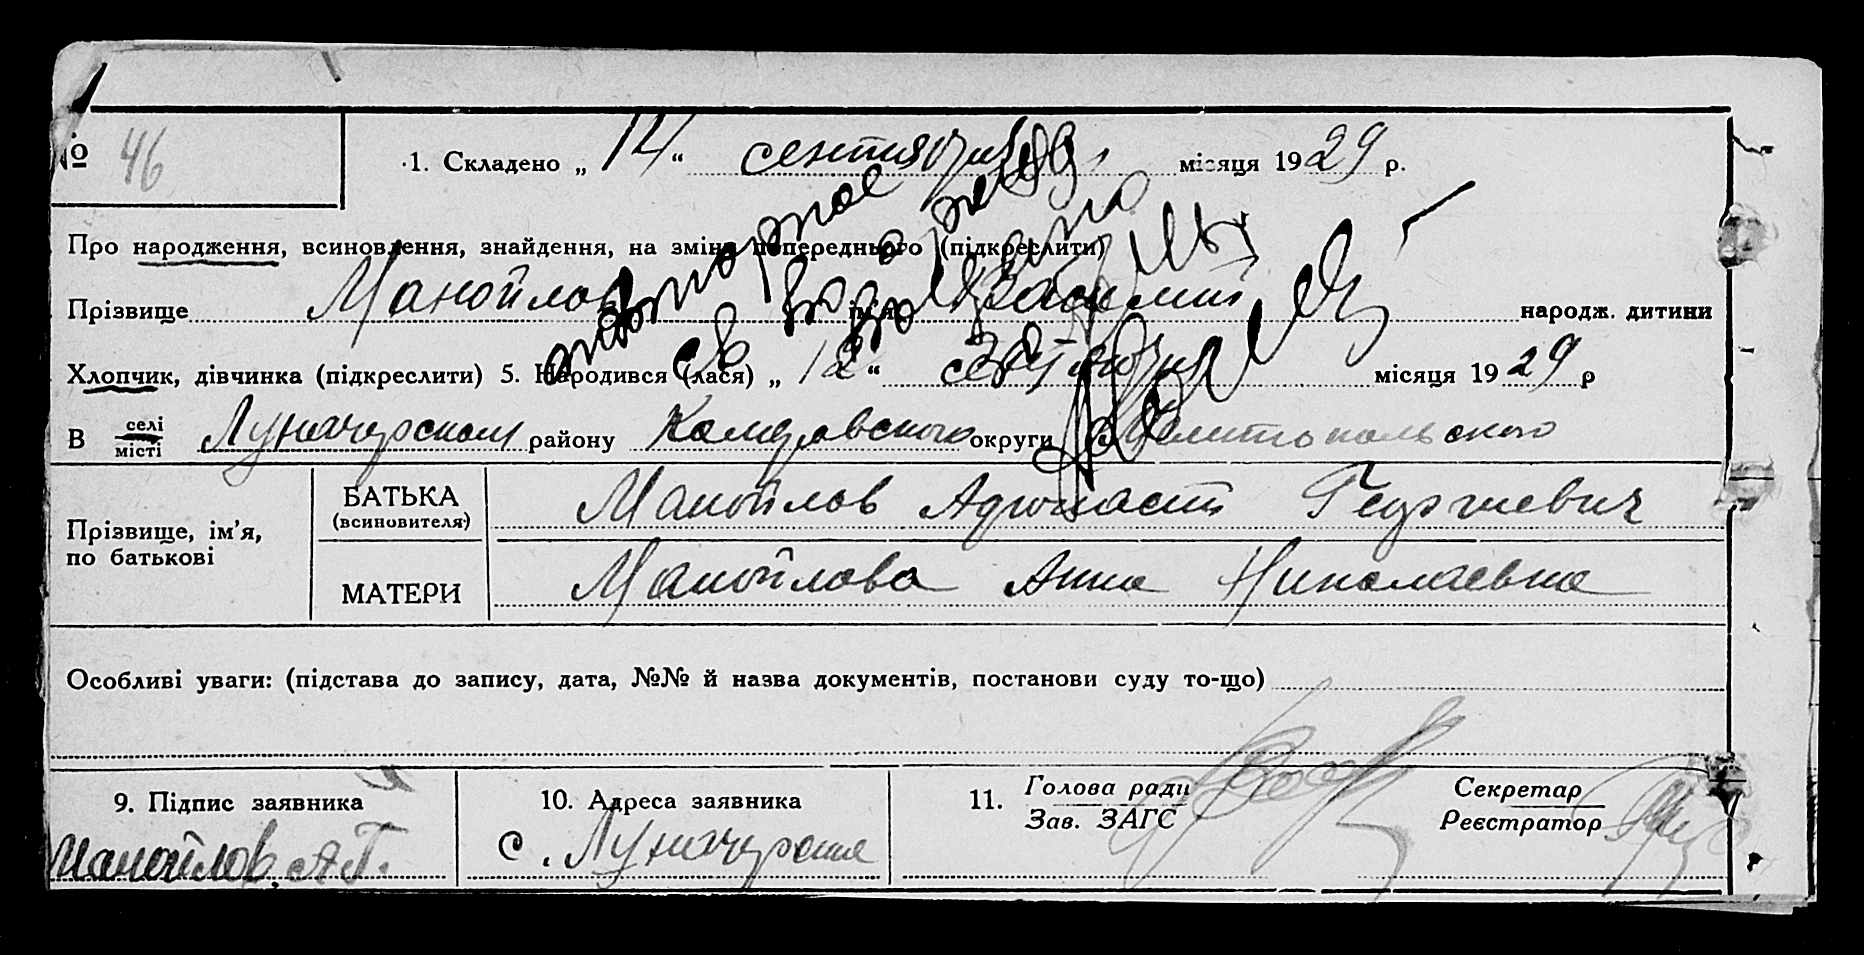 № 46
1. Складено „ 14 “ сентября місяця 1929 р.
Про народження, всиновлення, знайдення, на зміну попереднього (підкреслити)
Прізвище Манойлов ім'я Василий народж. дитини
Хлопчик, дівчинка (підкреслити) 5. Народився (лася) „ 12 “ сентября місяця 1929 р
повторное св во о рожд
выдано
В селі Луначарском району Коларовского округи Мелитопольского
місті
Прізвище, ім'я,
по батькові
БАТЬКА
(всиновителя)
Манойлов Георгиевич
МАТЕРИ
Манойлова Анна Николаевна
Особливі уваги: (підстава до запису, дата, №№ й назва документів, постанови суду то-що)
9. Підпис заявника
Манойлов А.Г.
10. Адреса заявника
с. Луначарское
11. Голова ради
Зав. ЗАГС
Секретар
Реєстратор